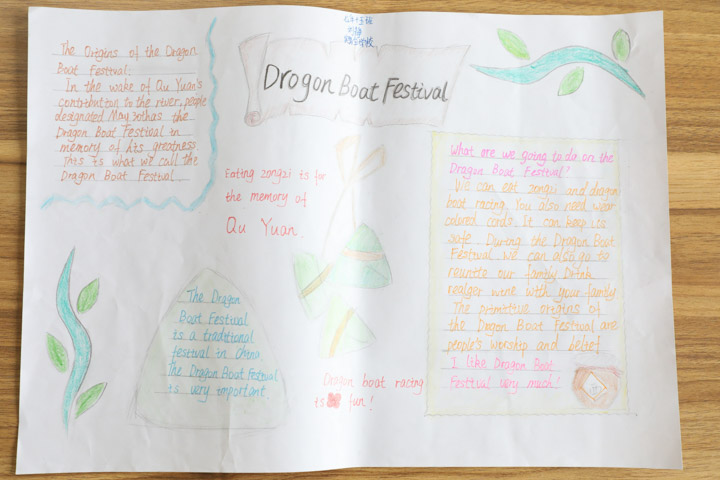 Drogon Boat Festival
The Origins of the Dragon
Boat Festival:
In the wake of Qu Yuan's
contribution to the river, people
designated May 5thas the
Dragon Boat Festival in
memory of his greatness.
This is what we call the
Dragon Boat Festival
Eating zongzi is for
the memory of
Qu Yuan.
The Dragon
Boat Festival
is a traditional
festival in China
The Dragon Boat Festival
is very important.
Dragon boat racing
is fun!
What are we going to do on the
Dragon Boat Festival?
We can eat zongzi and dragon
boat racing. You also need wear
colored cords. It can keep us
safe. During the Dragon Boat
Festival we can also go to
reunite our family Drink
realger wine with your family
The primitive origins of
the Dragon Boat Festival are
people's worship and belief
I like Dragon Boat
Festival very much!